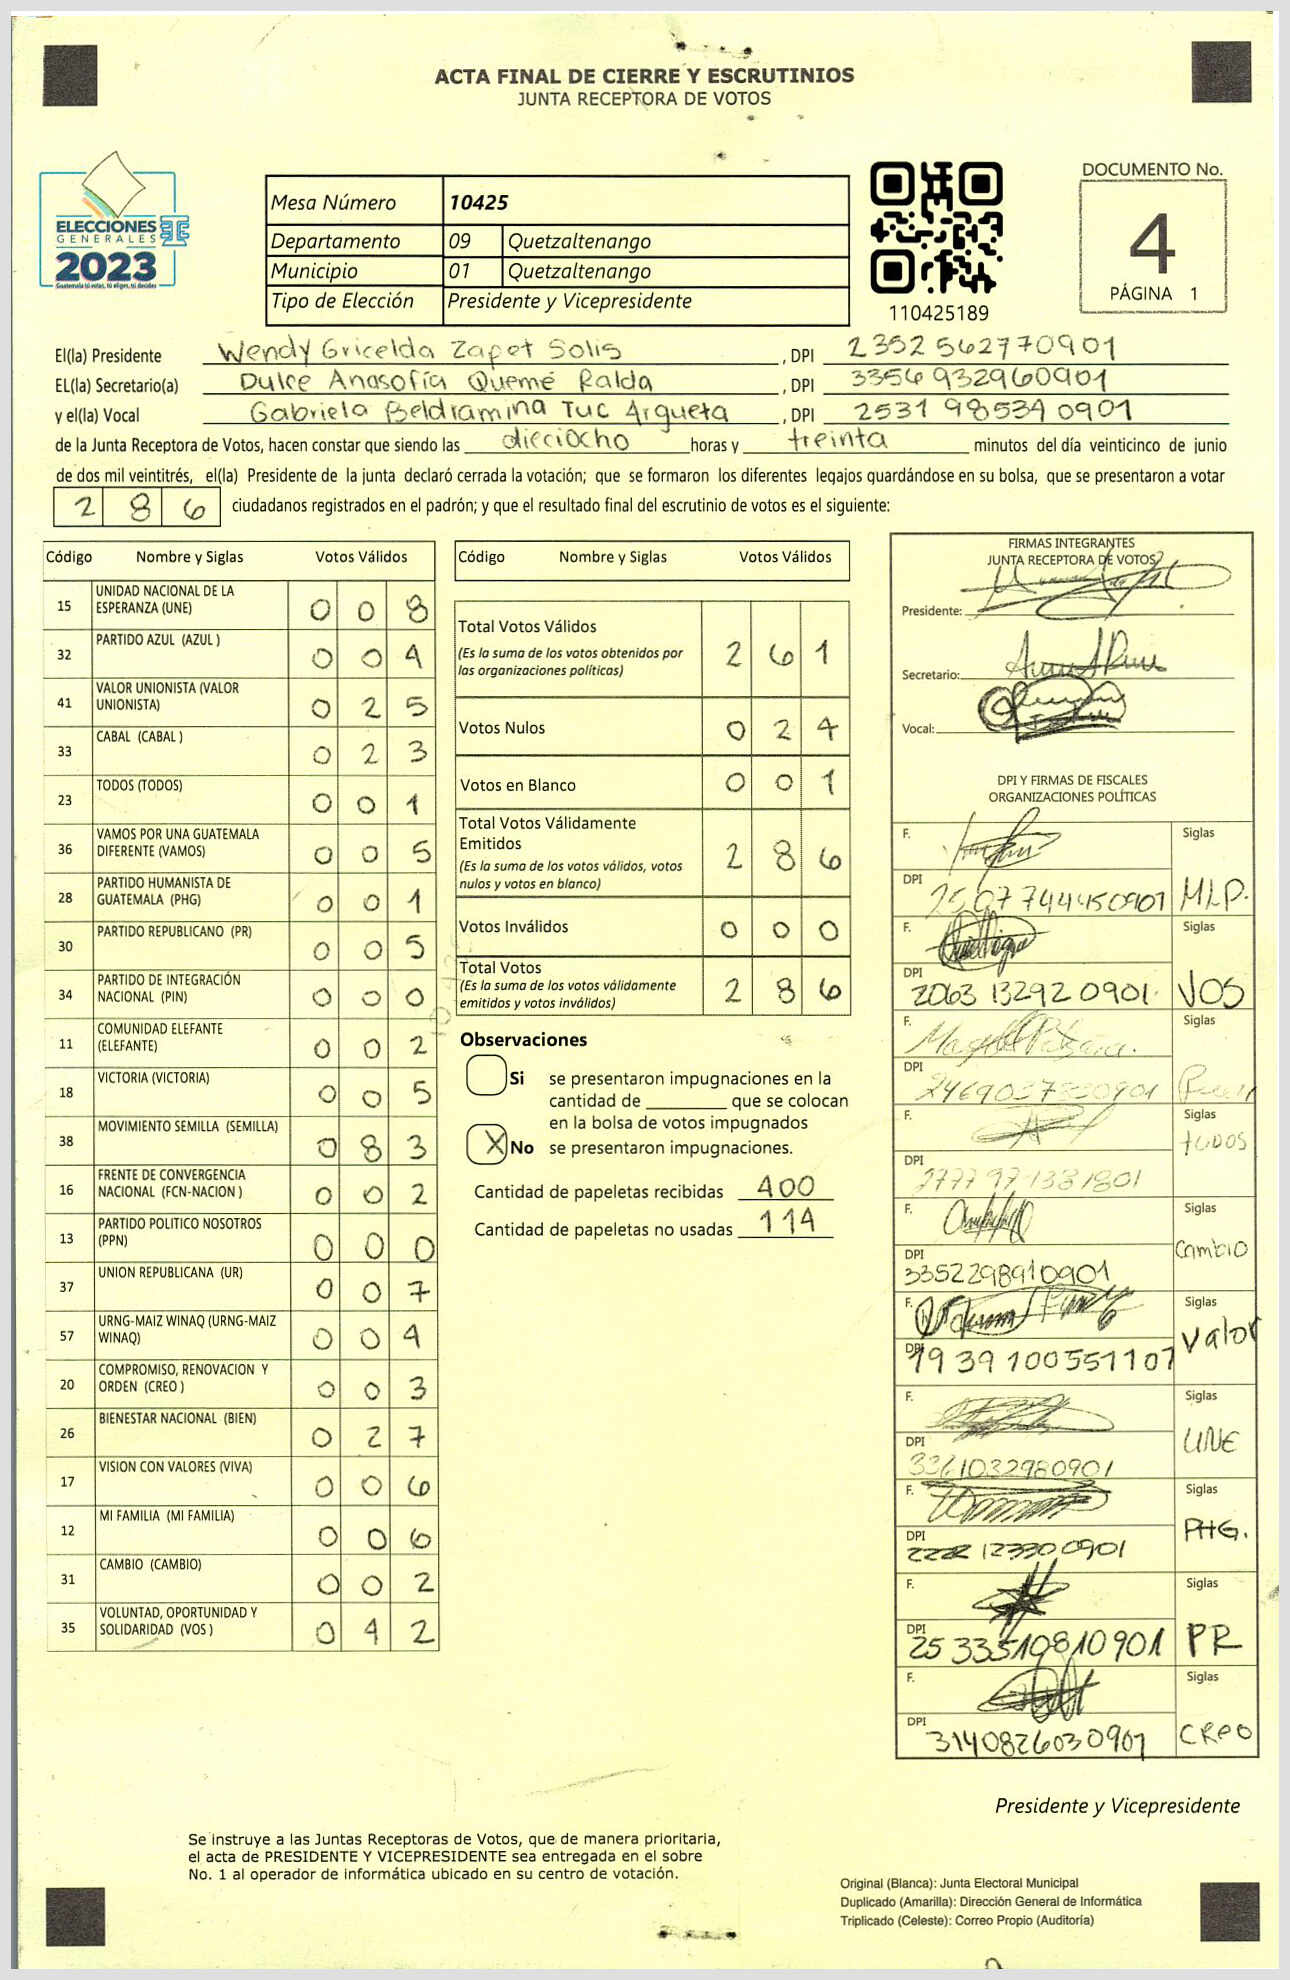 ACTA FINAL DE CIERRE Y ESCRUTINIOS
JUNTA RECEPTORA DE VOTOS
ELECCIONES
GENERALES
2023
Guatemala tú votas, tú eliges, tú decides
Mesa Número 10425
Departamento 09 Quetzaltenango
Municipio 01 Quetzaltenango
Tipo de Elección Presidente y Vicepresidente
110425189
DOCUMENTO No.
4
PÁGINA 1
El(la) Presidente Wendy Gricelda Zapet Solis , DPI 2352 56277 0901
EL(la) Secretario(a) Dulce Anasofía Quemé Ralda , DPI 3356 93296 0901
y el(la) Vocal Gabriela Beldramina Tuc Argueta , DPI 2531 98534 0901
de la Junta Receptora de Votos, hacen constar que siendo las dieciocho horas y treinta minutos del día veinticinco de junio
de dos mil veintitrés, el(la) Presidente de la junta declaró cerrada la votación; que se formaron los diferentes legajos guardándose en su bolsa, que se presentaron a votar
2 8 6 ciudadanos registrados en el padrón; y que el resultado final del escrutinio de votos es el siguiente:
Código Nombre y Siglas Votos Válidos
15 UNIDAD NACIONAL DE LA ESPERANZA (UNE) 0 0 8
32 PARTIDO AZUL (AZUL ) 0 0 4
41 VALOR UNIONISTA (VALOR UNIONISTA) 0 2 5
33 CABAL (CABAL ) 0 2 3
23 TODOS (TODOS) 0 0 1
36 VAMOS POR UNA GUATEMALA DIFERENTE (VAMOS) 0 0 5
28 PARTIDO HUMANISTA DE GUATEMALA (PHG) 0 0 1
30 PARTIDO REPUBLICANO (PR) 0 0 5
34 PARTIDO DE INTEGRACIÓN NACIONAL (PIN) 0 0 0
11 COMUNIDAD ELEFANTE (ELEFANTE) 0 0 2
18 VICTORIA (VICTORIA) 0 0 5
38 MOVIMIENTO SEMILLA (SEMILLA) 0 8 3
16 FRENTE DE CONVERGENCIA NACIONAL (FCN-NACION ) 0 0 2
13 PARTIDO POLITICO NOSOTROS (PPN) 0 0 0
37 UNION REPUBLICANA (UR) 0 0 7
57 URNG-MAIZ WINAQ (URNG-MAIZ WINAQ) 0 0 4
20 COMPROMISO, RENOVACION Y ORDEN (CREO ) 0 0 3
26 BIENESTAR NACIONAL (BIEN) 0 2 7
17 VISION CON VALORES (VIVA) 0 0 6
12 MI FAMILIA (MI FAMILIA) 0 0 6
31 CAMBIO (CAMBIO) 0 0 2
35 VOLUNTAD, OPORTUNIDAD Y SOLIDARIDAD (VOS ) 0 4 2
Código Nombre y Siglas Votos Válidos
Total Votos Válidos 2 6 1
(Es la suma de los votos obtenidos por las organizaciones políticas)
Votos Nulos 0 2 4
Votos en Blanco 0 0 1
Total Votos Válidamente Emitidos 2 8 6
(Es la suma de los votos válidos, votos nulos y votos en blanco)
Votos Inválidos 0 0 0
Total Votos 2 8 6
(Es la suma de los votos válidamente emitidos y votos inválidos)
Observaciones
Si se presentaron impugnaciones en la
cantidad de ________ que se colocan
en la bolsa de votos impugnados
X No se presentaron impugnaciones.
Cantidad de papeletas recibidas 400
Cantidad de papeletas no usadas 114
FIRMAS INTEGRANTES
JUNTA RECEPTORA DE VOTOS
Presidente:
Secretario:
Vocal:
DPI Y FIRMAS DE FISCALES
ORGANIZACIONES POLÍTICAS
F. Siglas
DPI MLP.
F. Siglas
DPI 2063 13292 0901. VOS
F. Siglas
DPI
F. Siglas
DPI todos
F. Siglas
DPI 3352298910901 cambio
F. Siglas
DPI 1939 10055 1107 Valor
F. Siglas
DPI 3361032980901 UNE
F. Siglas
DPI 2222 12330 0901 PHG.
F. Siglas
DPI 25 33510810901 PR
F. Siglas
DPI 3140826030901 creo
Presidente y Vicepresidente
Se instruye a las Juntas Receptoras de Votos, que de manera prioritaria,
el acta de PRESIDENTE Y VICEPRESIDENTE sea entregada en el sobre
No. 1 al operador de informática ubicado en su centro de votación.
Original (Blanca): Junta Electoral Municipal
Duplicado (Amarilla): Dirección General de Informática
Triplicado (Celeste): Correo Propio (Auditoría)